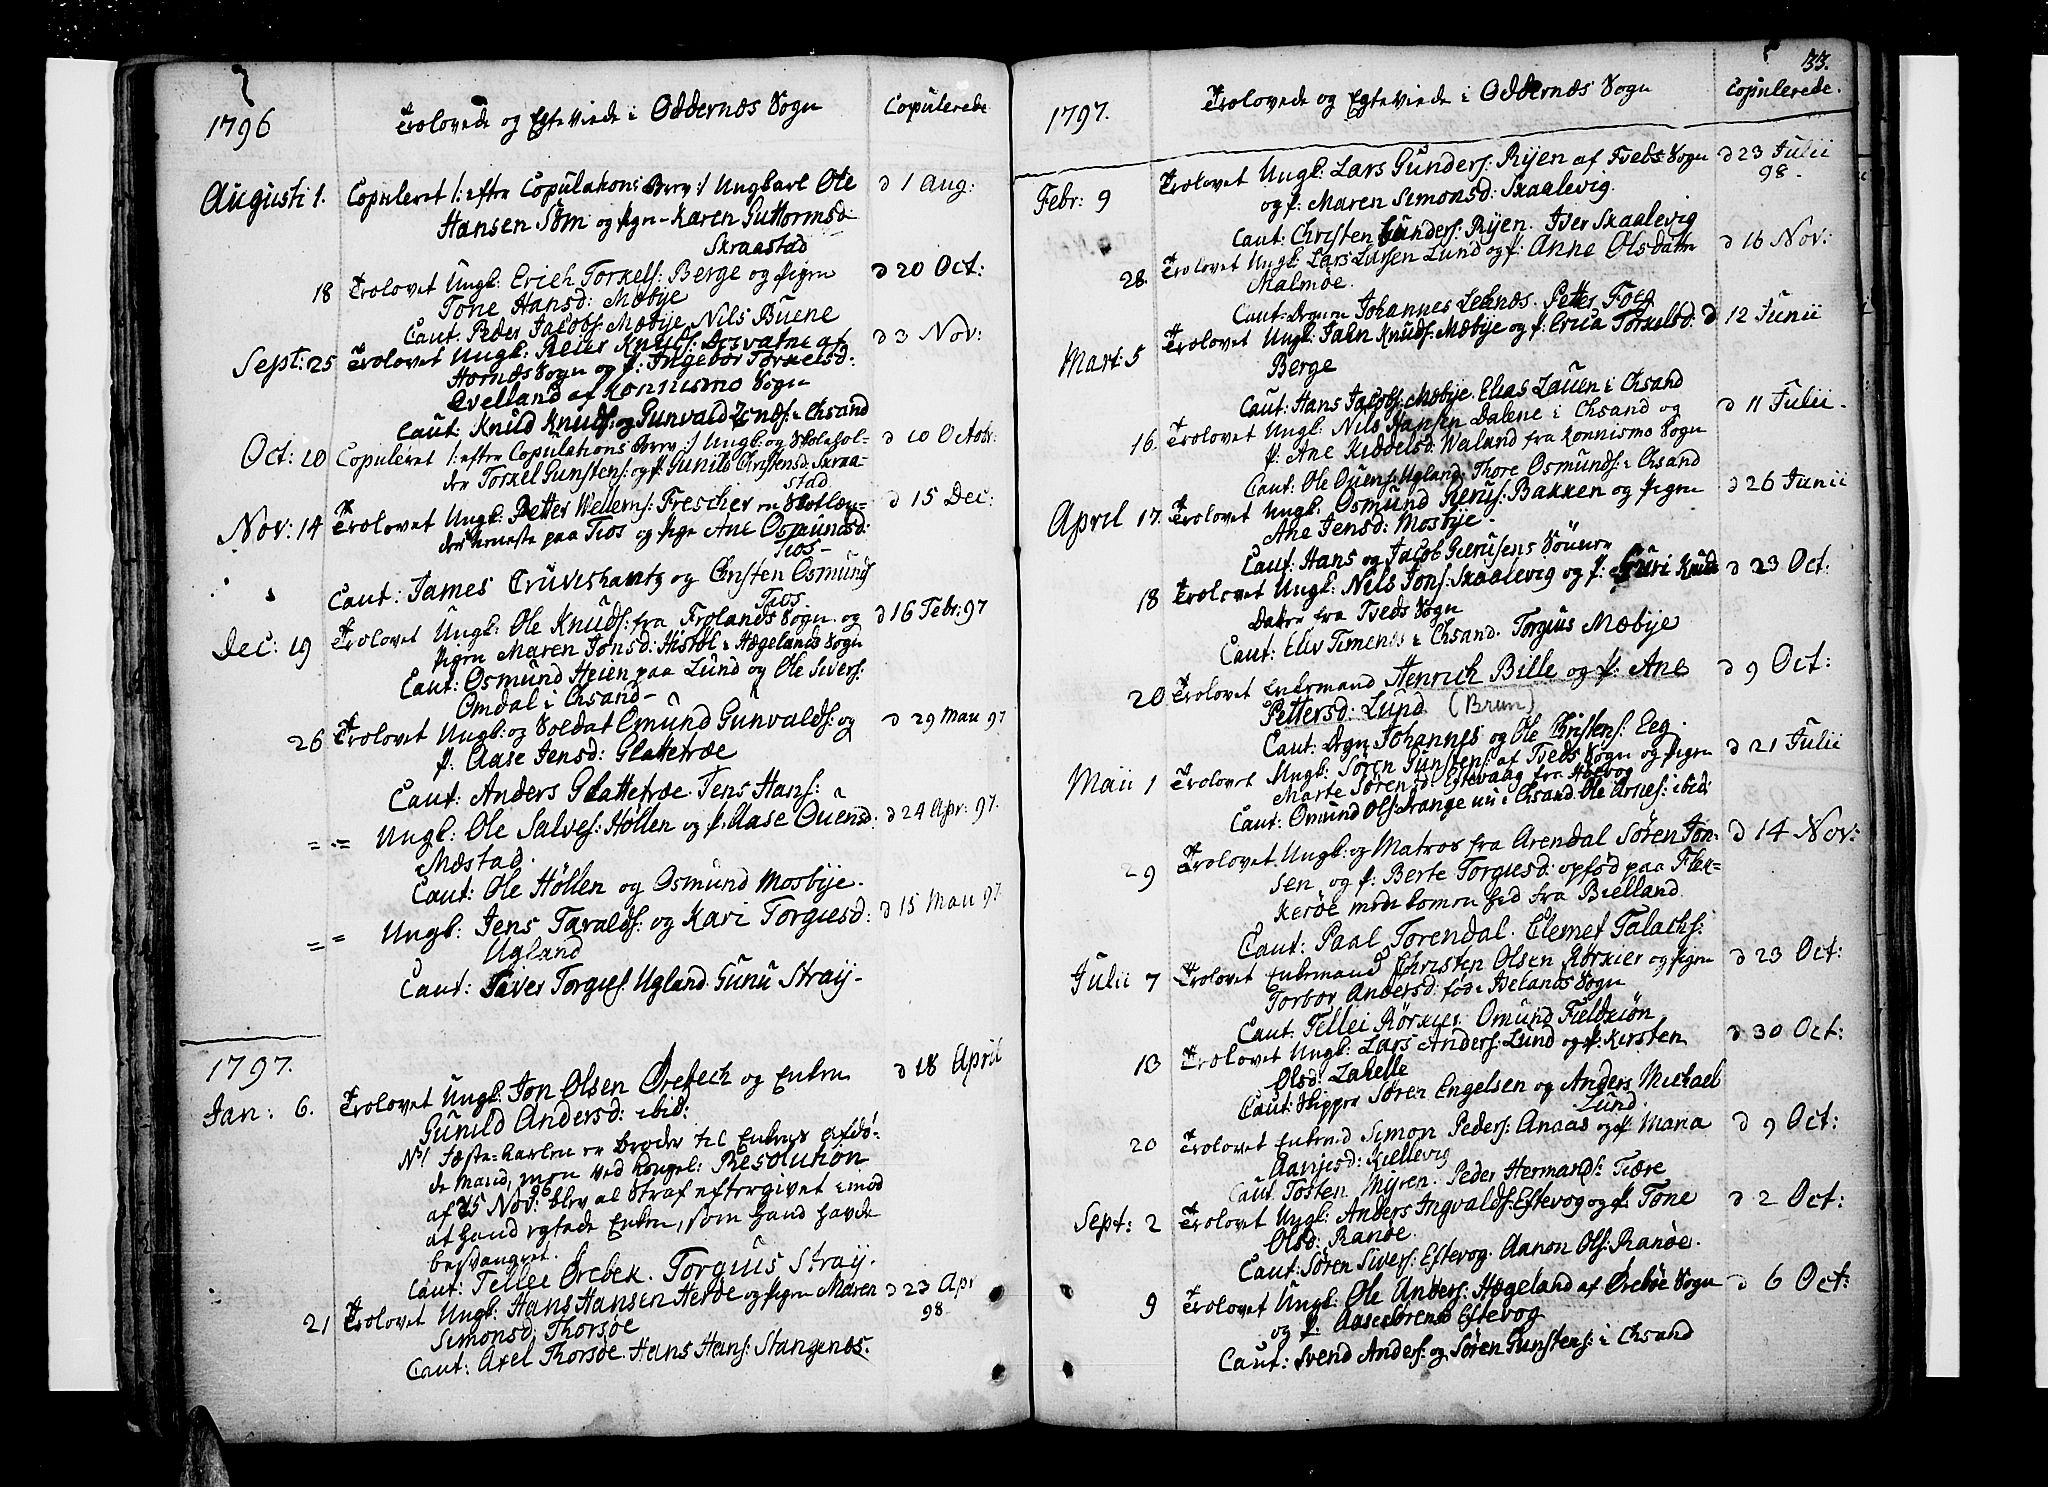 1796
Trolovede og Egteviede i Oddernæs Sogn
Copulerede
Augusti 1.
Copuleret /: efter Copulations Brev :/ Ungkarl Ole
d 1 Aug:
Hansen Søm og Pigen Karen Guttormsd:
Skraastad
18
Trolovet Ungk: Erich Torkels: Berge og Pigen
d 20 Oct:
Tone Hansd: Mæbye
Caut: Peder Jacobs: Mæbye, Nils Buene
Sept: 25
Trolovet Ungk: Reier Knuds: af
d 3 Nov:
Hornæs Sogn og P: Ingebor Torkelsd:
Qvelland af Konnismo Sogn
Caut: Knud Knuds: og Gunvald i Chsand
Oct: 10
Copuleret /: efter Copulations Brev :/ Ungk: og Skolehol-
d 10 Octobr:
der Torkel Gunstens: og P: Gunild Christensd: Skraa-
stad
Nov: 14
Trolovet Ungk: Petter Wellems: Frescher en Skotlæn-
d 15 Dec:
der paa Tios og Pige Ane Osmundsd:
Tios
Caut: James Cruvishantz og Christen Osmunds
Tios
Dec: 19
Trolovet Ungk: Ole Knuds: fra Frolands Sogn og
d 16 Febr: 97
Pigen Maren Jonsd: Histøl i Høgelands Sogn
Caut: Osmund Heien paa Lund og Ole Sivers:
Omdal i Chsand
26
Trolovet Ungk: og Soldat Omund Gunvalds: og
d 29 Maii 97
P: Aase Jensd: Glattetræ
Caut: Anders Glattetræ. Jens Hans:
= = Ungk: Ole Salves: Höllen og P: Aase Ouensd:
d 24 Apr: 97.
Mæstad.
Caut: Ole Höllen og Osmund Mosbye.
= = Ungk: Jens Taralds: og Kari Torgiesd:
d 15 Maii 97
Ugland
Caut: Siver Torgies: Ugland. Gunu Straij
1797.
Jan: 6.
Trolovet Ungk: Jon Olsen Ørebech og Enken
d 18 April
Gunild Andersd: ibid:
NB! Fæste-karlen er Broder til Enkens afdø-
de Mand, men ved Kongel: Resolution
af 25 Nov: 96 blev al Straf eftergivet imod
at hand egtede Enken, som hand havde
besvangret.
Caut: Tellee Ørebek. Torgius Straij.
21
Trolovet Ungk: Hans Hansen Herøe og Pigen Maren
d 23 Apr
98.
Simonsd: Thorsøe
Caut: Axel Thorsøe. Hans Hans: Stangenæs.
33.
1797.
Trolovede og Egteviede i Oddernæs Sogn
Copulerede.
Febr: 9
Trolovet Ungk: Lars Gunders: Ryen af Tveds Sogn
d 23 Julii
98.
og P: Maren Simonsd: Skaalevig.
Caut: Christen Gunders: Ryen. Iver Skaalevig
28.
Trolovet Ungk: Lars Larsen Lund og P: Anne Olsdatter
d 16 Nov:
Malmøe.
Caut: Johannes . Petter Foss
Mart: 5
Trolovet Ungk: Jahn Knuds: Mæbye og P: Erica Torkelsd:
d 12 Junii
Berge
Caut: Hans Jacobs: Mæbye. Elias Lauen i Chsand
16.
Trolovet Ungk: Nils Hansen Dalene i Chsand og
d 11 Julii
P: Ane Kiddelsd: Waland fra Konnismo Sogn
Caut: Ole Ouens: Ugland. Thore Osmunds: i Chsand
April 17.
Trolovet Ungk: Osmund Bakken og Pigen
d 26 Junii
Ane Jensd: Mosbye.
Caut: Hans og Jacob Sønner
18
Trolovet Ungk: Nels Jons: Skaalevig og P: Guri Knuds
d 23 Oct:
Datter fra Tveds Sogn
Caut: Eliv Timenes i Chsand. Torgius Mæbye
20
Trolovet Enkemand Henrich Bille og P: Ane
d 9 Oct:
Pettersd: Lund (Brun)
Caut: Johannes og Ole Christens: Eeg.
Maii 1
Trolovet Ungk: Søren Gunstens: af Tveds Sogn og Pigen
d 21 Julii
Marte Sørensd: Eftevaag fra Høivog
Caut: Omund Ols: Drange nu i Chsand. Ole Arnes: ibid:
29
Trolovet Ungk: og Matros fra Arendal Søren Jon-
d 14 Nov:
sen og P: Berte Torgiesd: opfød paa Flek-
kerøe men kommen hid fra Bielland.
Caut: Paal Torendal. Clemet Talachs:
Julii 7
Trolovet Enkemand Christen Olsen Rørkier og Pigen
d 23 Oct:
Torbor Andersd: fød i Ivelands Sogn
Caut: Tellei Rørkier. Omund Fieldkiön
13
Trolovet Ungk: Lars Anders: Lund og P: Kirsten
d 30 Oct:
Olsd: Lahelle
Caut: Skipper Søren Engelsen og Anders Michael
Lund.
20
Trolovet Enkemd Simon Peders: Anaas og P: Maria
d 9 Oct:
Aanjesd: Killevig
Caut: Tosten Myren. Peder Hermands: Tiære
Sept: 2
Trolovet Ungk: Anders Ingvalds: Eftevog og P: Tone
d 2 Oct:
Olsd: Ranøe.
Caut: Søren Sivers: Eftevog. Aanon Ols: Ranøe.
9
Trolovet Ungk: Ole Anders: Høgeland af Ørebøe Sogn
d 6 Oct:
og P: Aase Sørensd Eftevog
Caut: Svend Anders: og Søren Gunstens: i Chsand